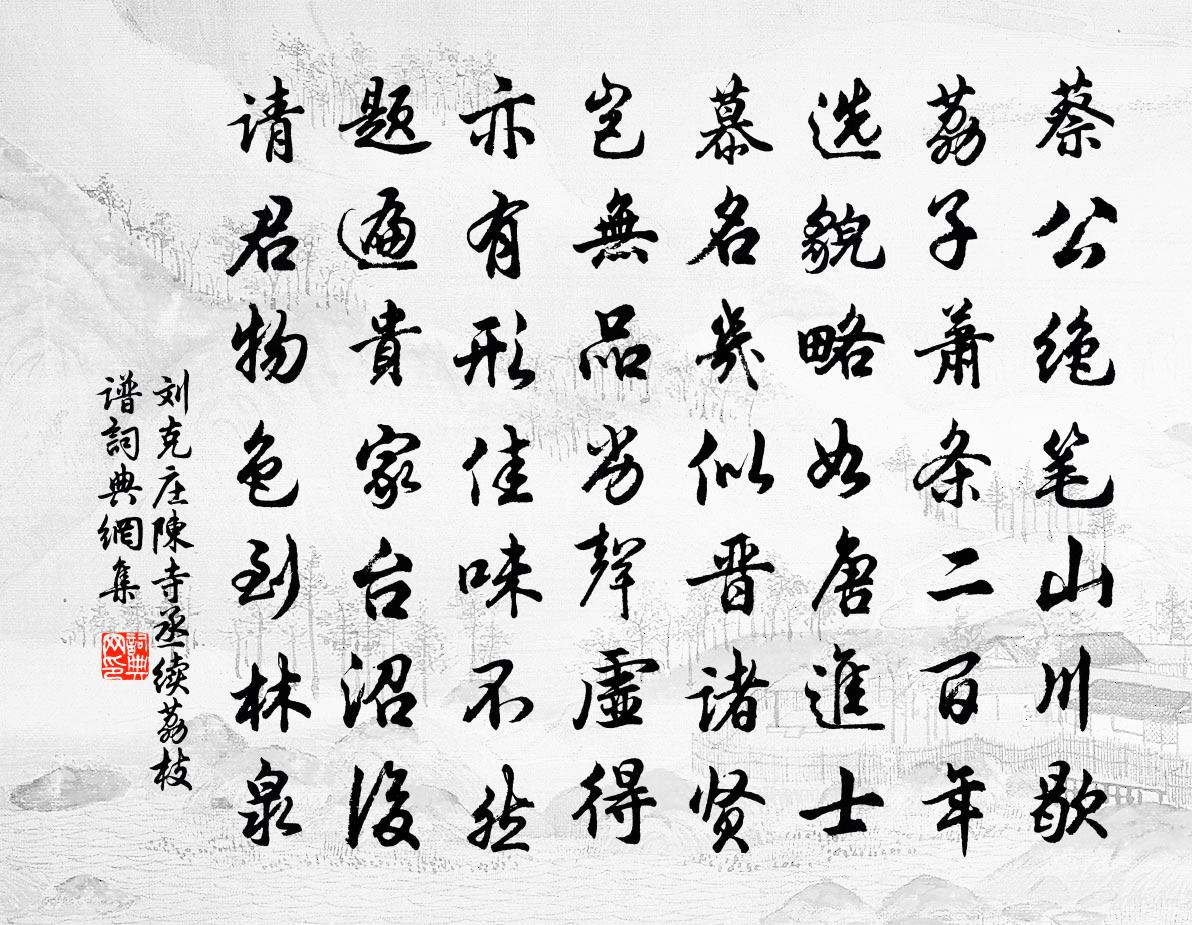 蔡公绝笔山川歇
荔子萧条二百年
选貌略如唐進士
慕名几似晋诸贤
岂無品劣聲虛得
亦有形佳味不然
题遍貴家台沼後
请君物色到林泉
刘克庄陳寺丞续荔枝
谱詞典網集
詞典